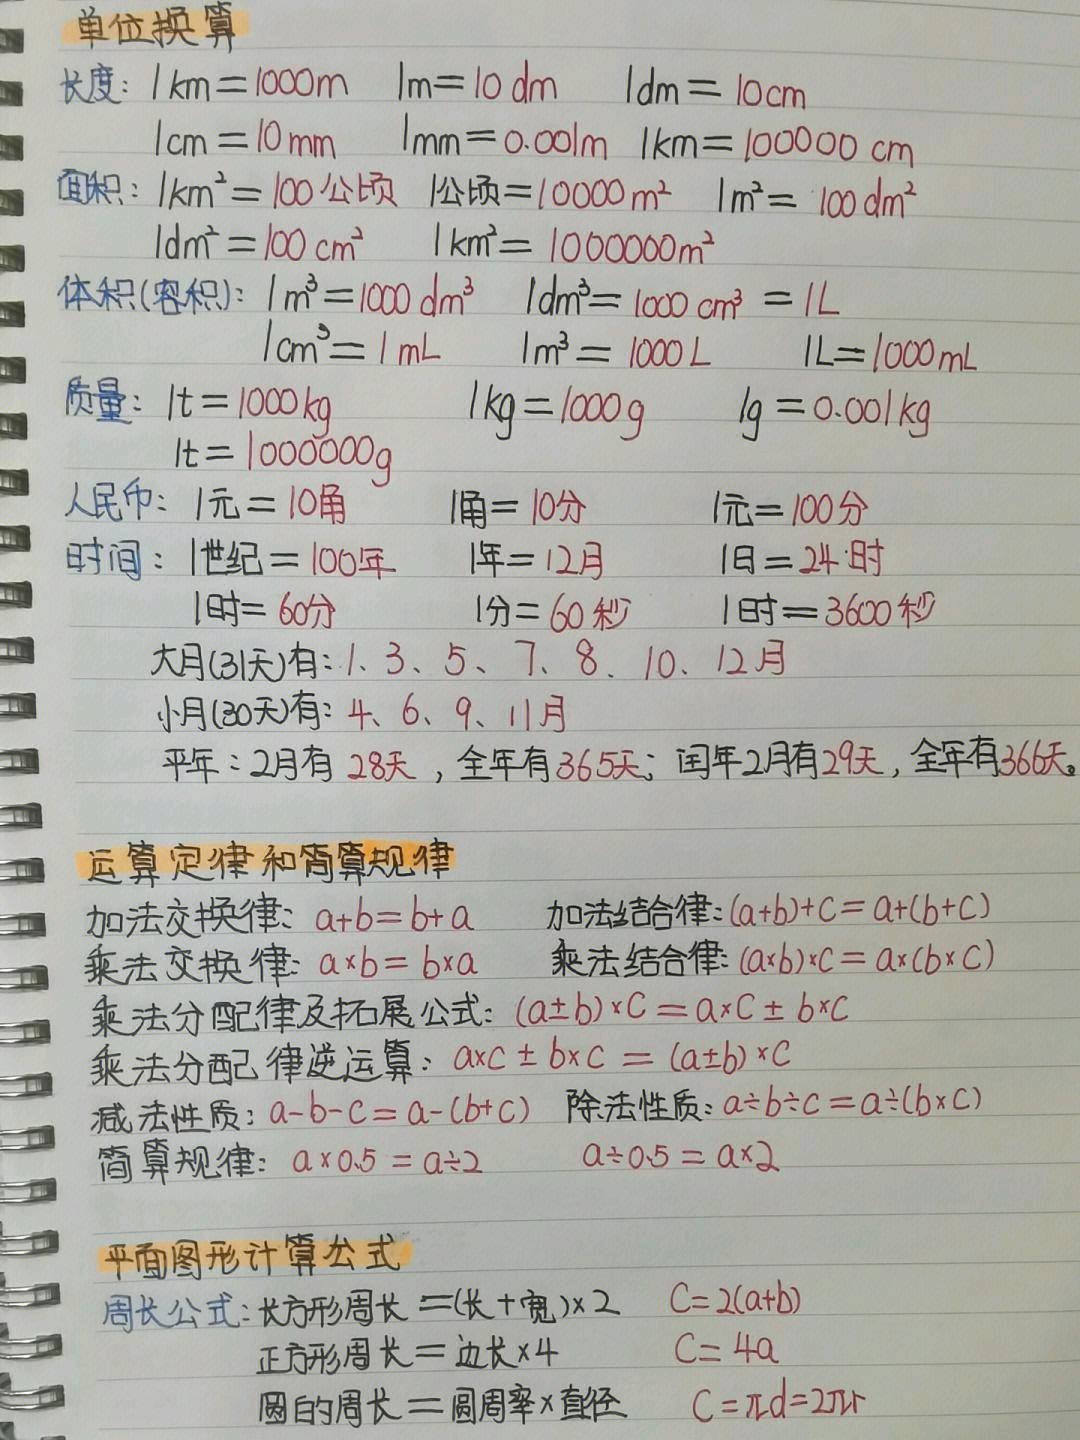 单位换算
长度: 1km=1000m 1m=10dm 1dm=10cm
1cm=10mm 1mm=0.001m 1km=100000cm
面积: 1km²=100公顷 1公顷=10000m² 1m²=100dm²
1dm²=100cm² 1km²=1000000m²
体积(容积): 1m³=1000dm³ 1dm³=1000cm³=1L
1cm³=1mL 1m³=1000L 1L=1000mL
质量: 1t=1000kg 1kg=1000g 1g=0.001kg
1t=1000000g
人民币: 1元=10角 1角=10分 1元=100分
时间: 1世纪=100年 1年=12月 1日=24时
1时=60分 1分=60秒 1时=3600秒
大月(31天)有: 1、3、5、7、8、10、12月
小月(30天)有: 4、6、9、11月
平年:2月有28天,全年有365天;闰年2月有29天,全年有366天。
运算定律和简算规律
加法交换律: a+b=b+a 加法结合律:(a+b)+c=a+(b+c)
乘法交换律: a×b=b×a 乘法结合律:(a×b)×c=a×(b×c)
乘法分配律及拓展公式:(a±b)×c=a×c±b×c
乘法分配律逆运算:a×c±b×c=(a±b)×c
减法性质:a-b-c=a-(b+c) 除法性质:a÷b÷c=a÷(b×c)
简算规律: a×0.5=a÷2 a÷0.5=a×2
平面图形计算公式
周长公式:长方形周长=(长+宽)×2 C=2(a+b)
正方形周长=边长×4 C=4a
圆的周长=圆周率×直径 C=πd=2πr